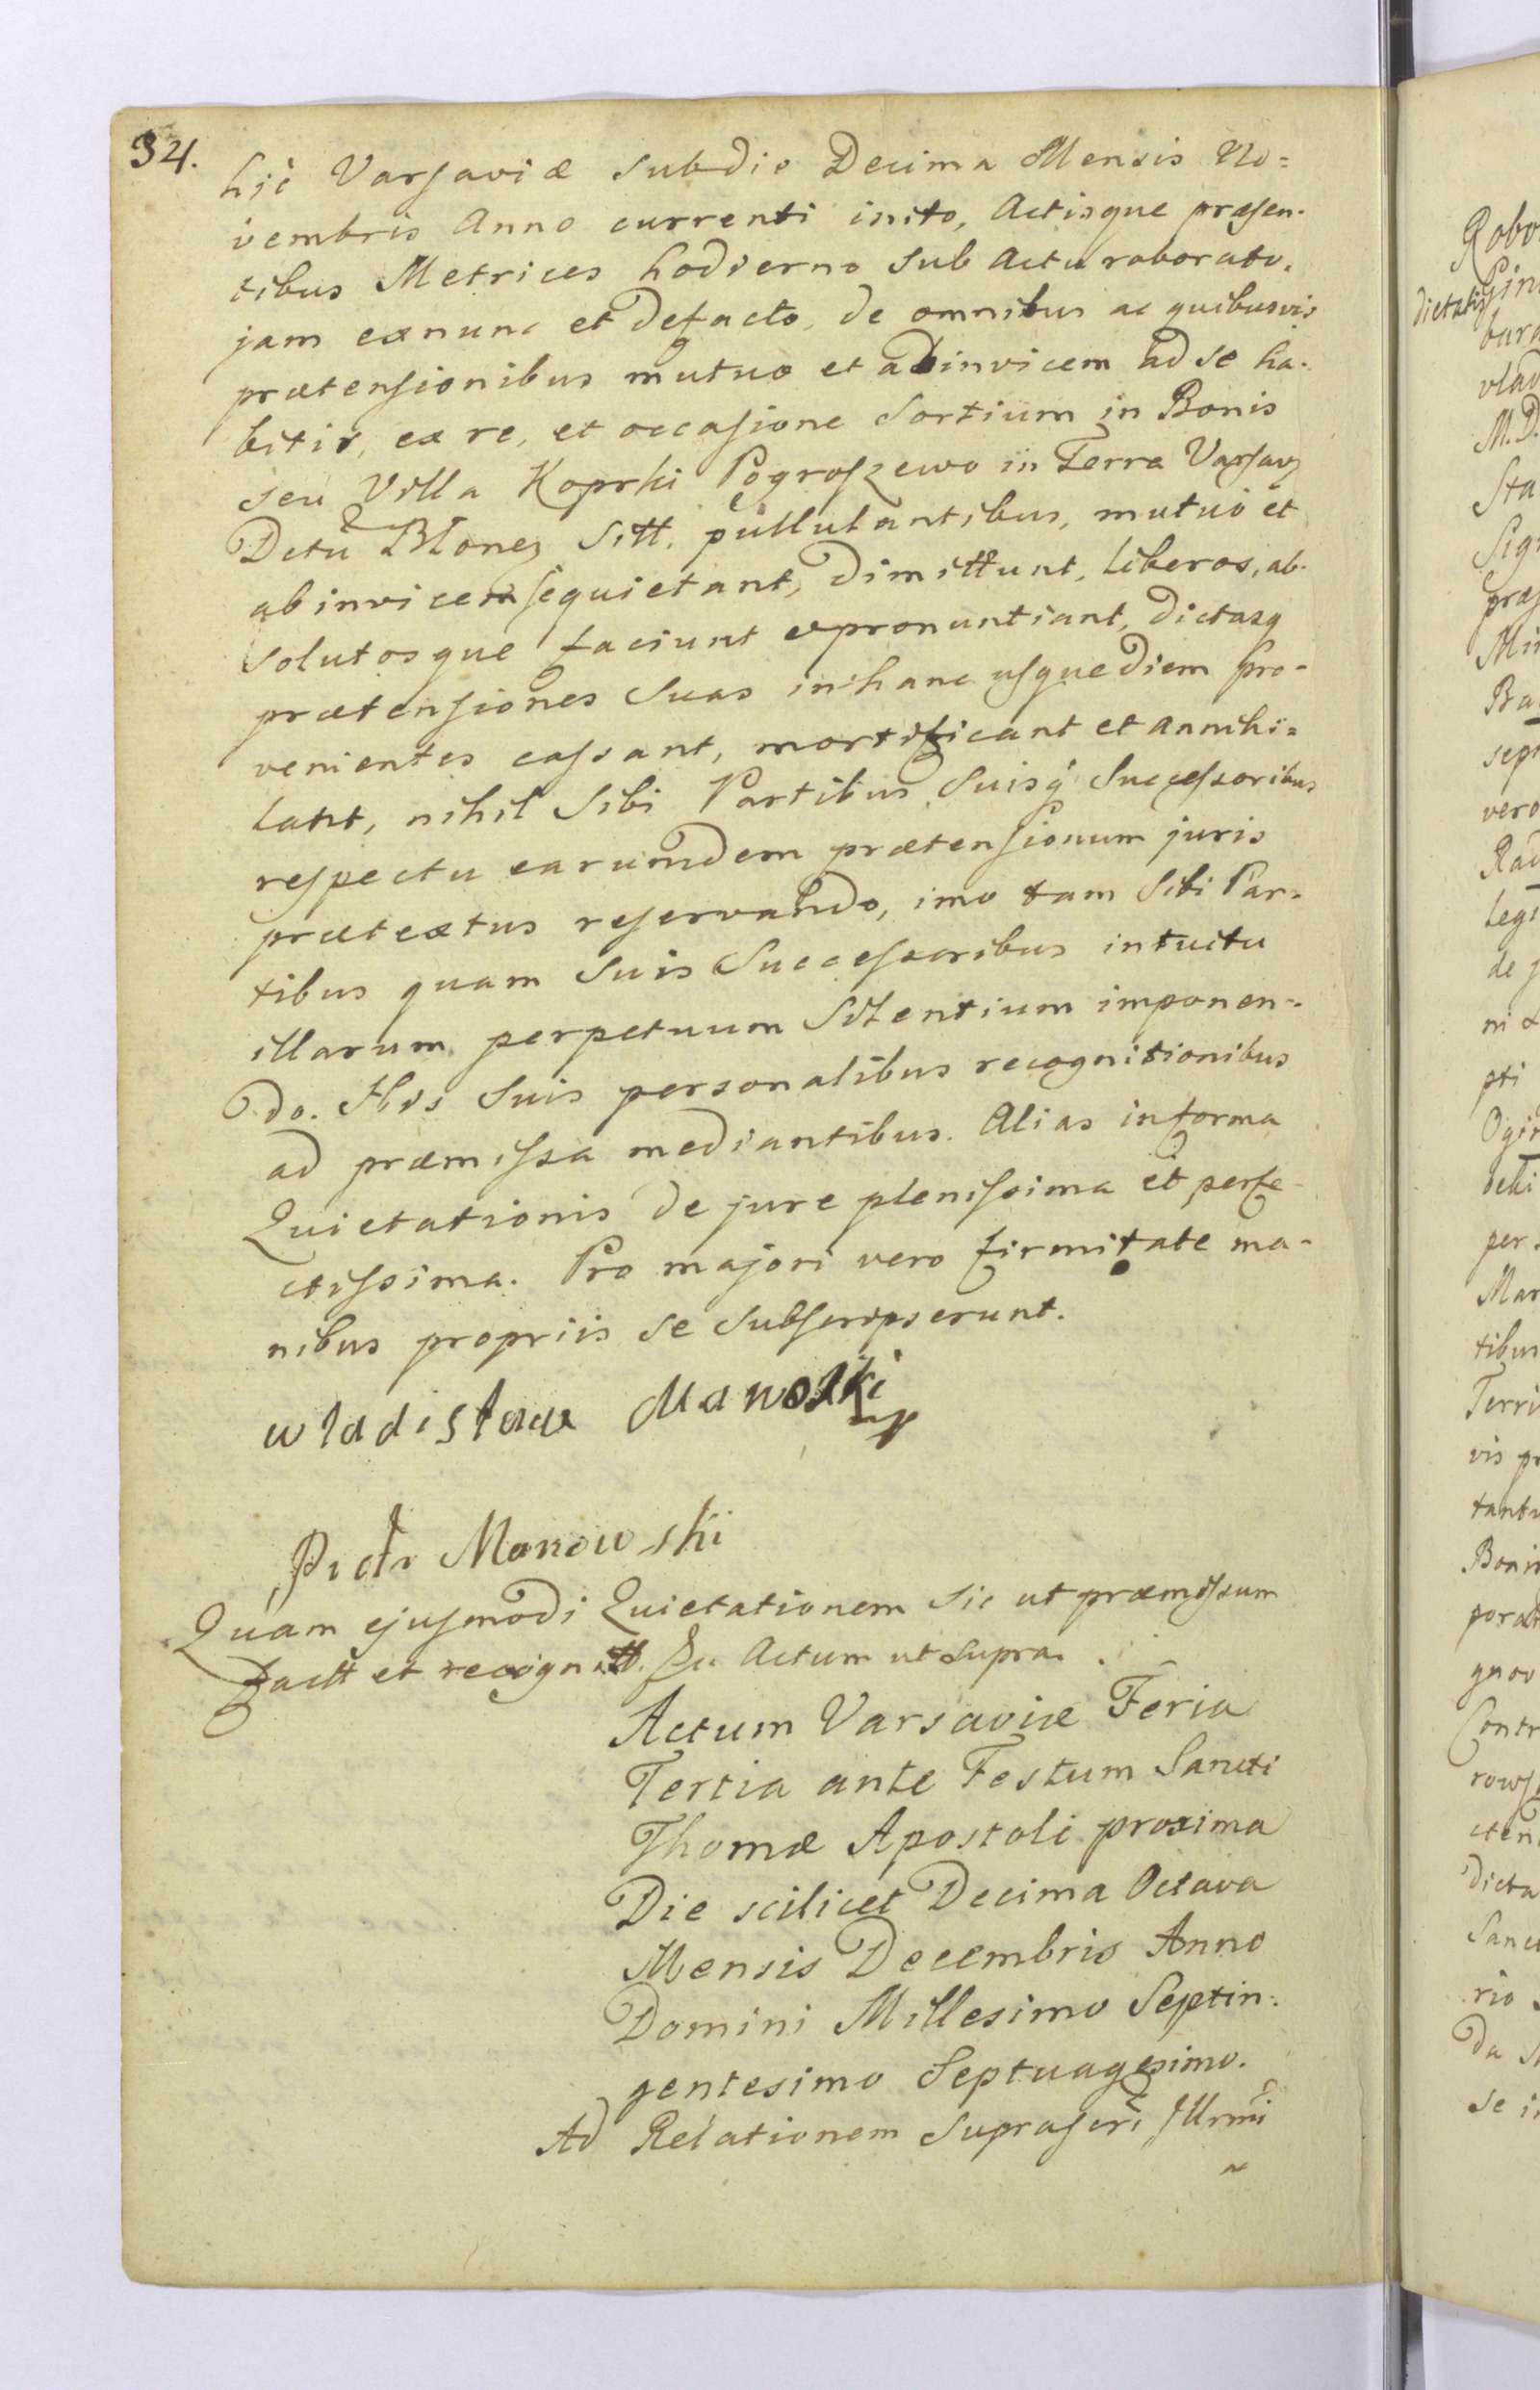 34.
hic Varsaviæ sub die Decima Mensis No=
vembris Anno currenti inito, Actisque præsen-
tibus Metrices hodierno sub Actu roborato,
jam exnunc et defacto, de omnibus ac quibusvis
prætensionibus mutuo et adinvicem ad se ha-
bitis, ex re, et occasione Sortium in Bonis
seu Villa Koprki Pogroszewo in Terra Varsav
Dctũ Blonez sitt. pullulantibus, mutuo et
ab invicem se quietant, dimittunt, liberos, ab-
solutosque faciunt et pronuntiant, dictasq
prætensiones suas inhanc usque diem pro-
venientes cassant, mortificant et annihi=
lant, nihil sibi Partibus suisq Successoribus
respectu earumdem prætensionum juris
prætextus reservando, imo tam sibi Par-
tibus quam suis Successoribus intuitu
illarum perpetuum silentium imponen-
do. His suis personalibus recognitionibus
ad præmissa mediantibus. Alias informa
Quietationis de jure plenissima et perfe-
ctissima. Pro majori vero firmitate ma-
nibus propriis se subscripserunt.
wladisław Manoski
mp
Piotr Manowski
Quam ejusmodi Quietationem sic ut præmissum
factt et recognitt. Actum ut supra.
Actum Varsaviæ Feria
Tertia ante Festum Sancti
Thomæ Apostoli proxima
Die scilicet Decima Octava
Mensis Decembris Anno
Domini Millesimo Septin-
gentesimo Septuagesimo.
Ad Relationem Suprascri Illrmi
dictatis
vlad
M.D.
Sta
Sig
præ
Ba
sept
vero
Rad
legi
de
ni
pti
Ogi
per
Mar
tibus
Terri
vis pr
tantu
Bonis
porat
Contr
rows
cten
dicta
Sanc
rio
da
se i